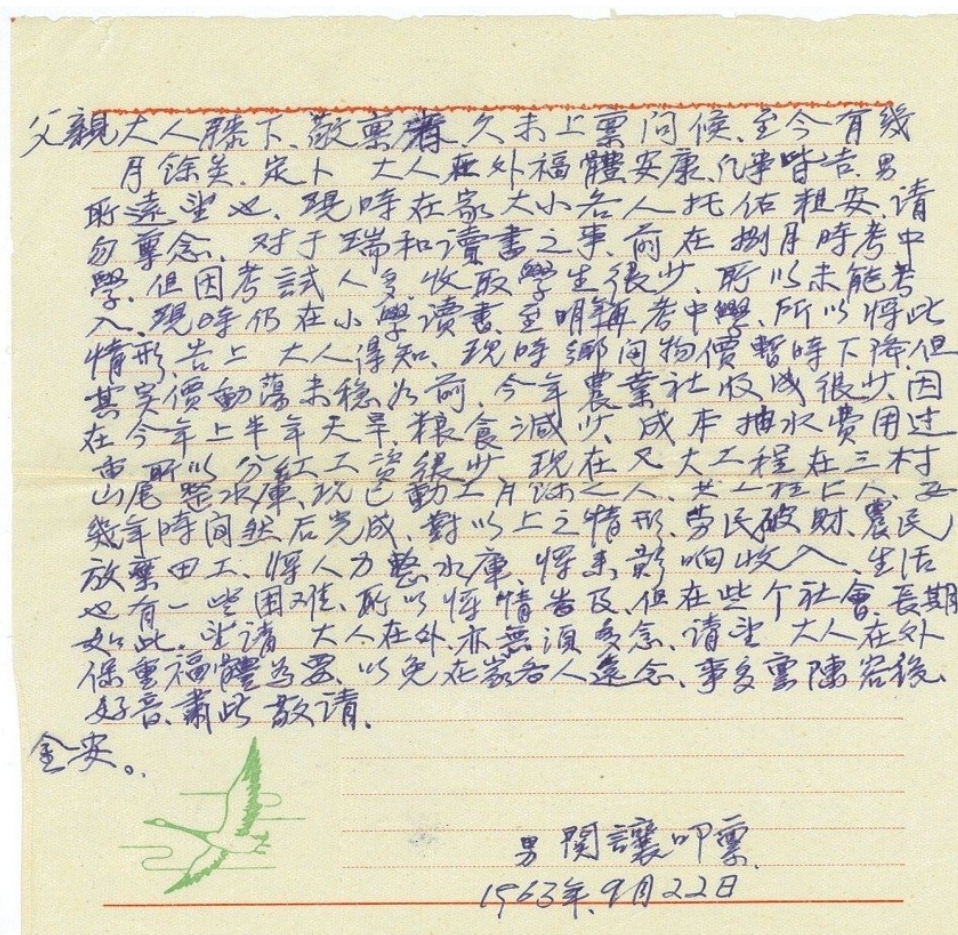 父親大人膝下、敬稟者、久未上稟問候、至今有幾
月餘矣、定卜 大人在外福體安康、凡事皆吉、男
所遠望也、現時在家大小各人托佑粗安、请
勿㝵念、对于瑞和讀書之事、前在捌月時考中
學、但因考試人多、收取學生很少、所以未能考
入、現時仍在小學讀書、至明 再考中學、所以將此
情形、告上 大人得知、現時鄉间物價暫時下降、但
其实價動蕩未穩 前、今年農業社收成很少、因
在今年上半年天旱、粮食減少、成本抽水費用过
重所以分紅工資很少、现在又大工程在三村
山尾整水庫、现已動工月馀之人、
幾年時间然后完成、對以上之情形、劳民破财、農民
放棄田工、將人力整水庫、將来影响收入、生活
也有一些困难、所以将情告及、但在些个社會、長期
如此、望请 大人在外、亦無須多念、请望 大人在外
保重福體為要、以免在家各人遠念、事多 陳容後、
好音、肅此敬请、
金安。
男閲讓叩稟
1963年、9月22日